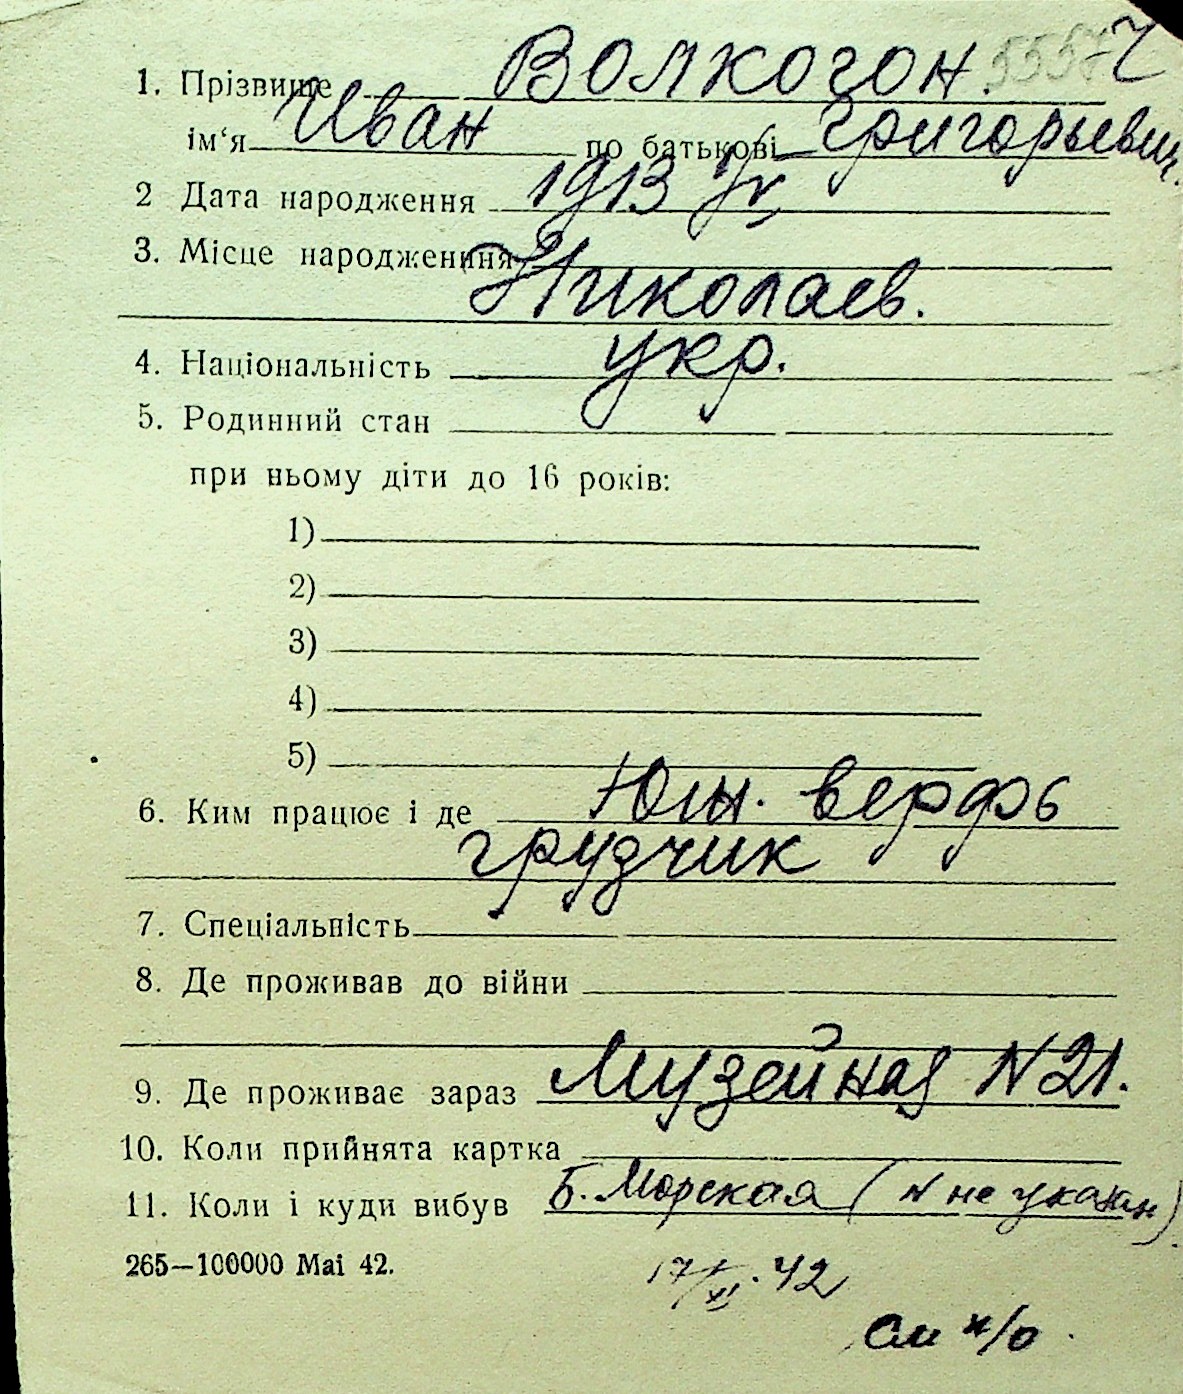 1. Прізвище Волкогон. 5557-2
ім'я Иван по батькові Григорьевич.
2 Дата народження 1913
3. Місце народженння
Николаев.
4. Національність укр.
5. Родинний стан
при ньому діти до 16 років:
1)
2)
3)
4)
5)
6. Ким працює і де Южн. верфь
грузчик
7. Спеціальність
8. Де проживав до війни
9. Де проживає зараз Музейная N 21.
10. Коли прийнята картка
11. Коли і куди вибув Б. Морская (N не указан)
265—100000 Mai 42.
17/XI. 42
См н/о